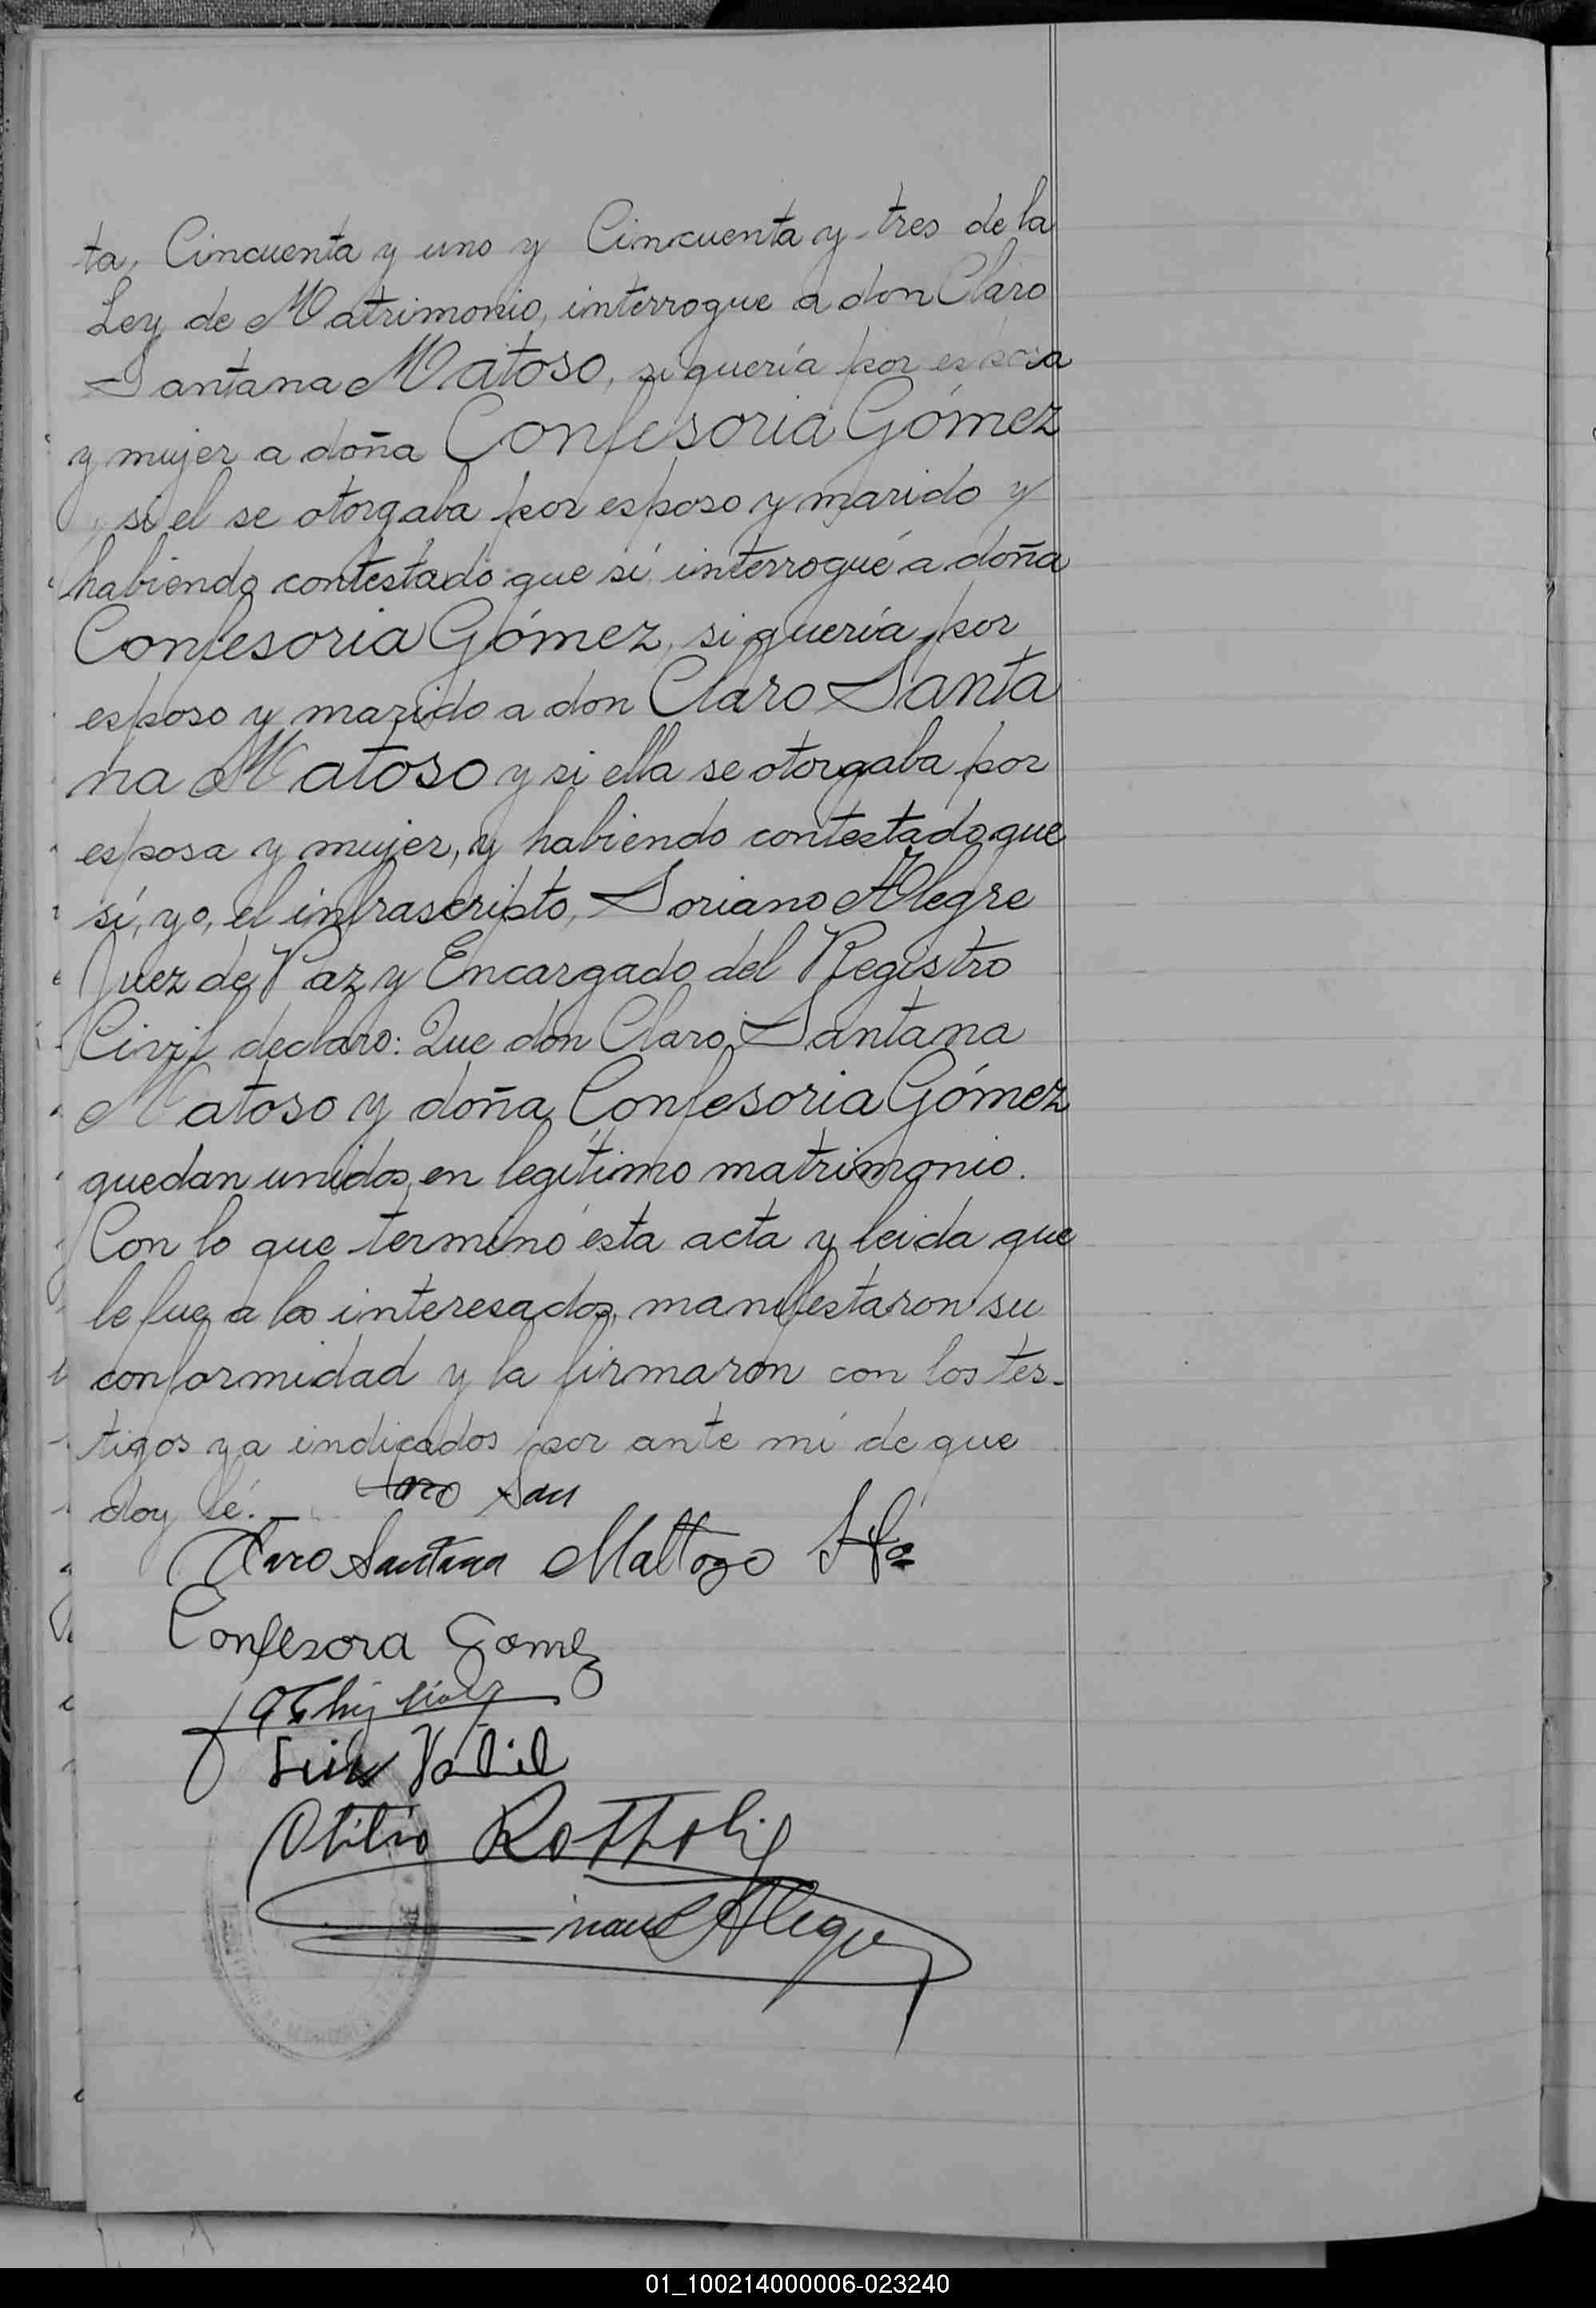 ta, Cincuenta y uno y Cincuenta y tres de la
Ley de Matrimonio, interrogue a don Claro
Santana Matoso, si quería por esposa
y mujer a doña Confesoria Gómez
y si el se otorgaba por esposo y marido y
habiendo contestado que sí interrogué a doña
Confesoria Gómez, si quería por
esposo y marido a don Claro Santa
na Matoso y si ella se otorgaba por
esposa y mujer, y habiendo contestado que
sí, yo, el infrascripto, Soriano Alegre
Juez de Paz y Encargado del Registro
Civil declaro: Que don Claro Santana
Matoso y doña Confesoria Gómez
quedan unidos en legítimo matrimonio.
Con lo que terminó esta acta y leida que
le fue a los interesados, manifestaron su
conformidad y la firmaron con los tes-
tigos ya indicados por ante mí de que
doy fé.
Claro Santana Mattozo
Confesora Gomez
Luis
Otilio
Alegre
01_100214000006-023240